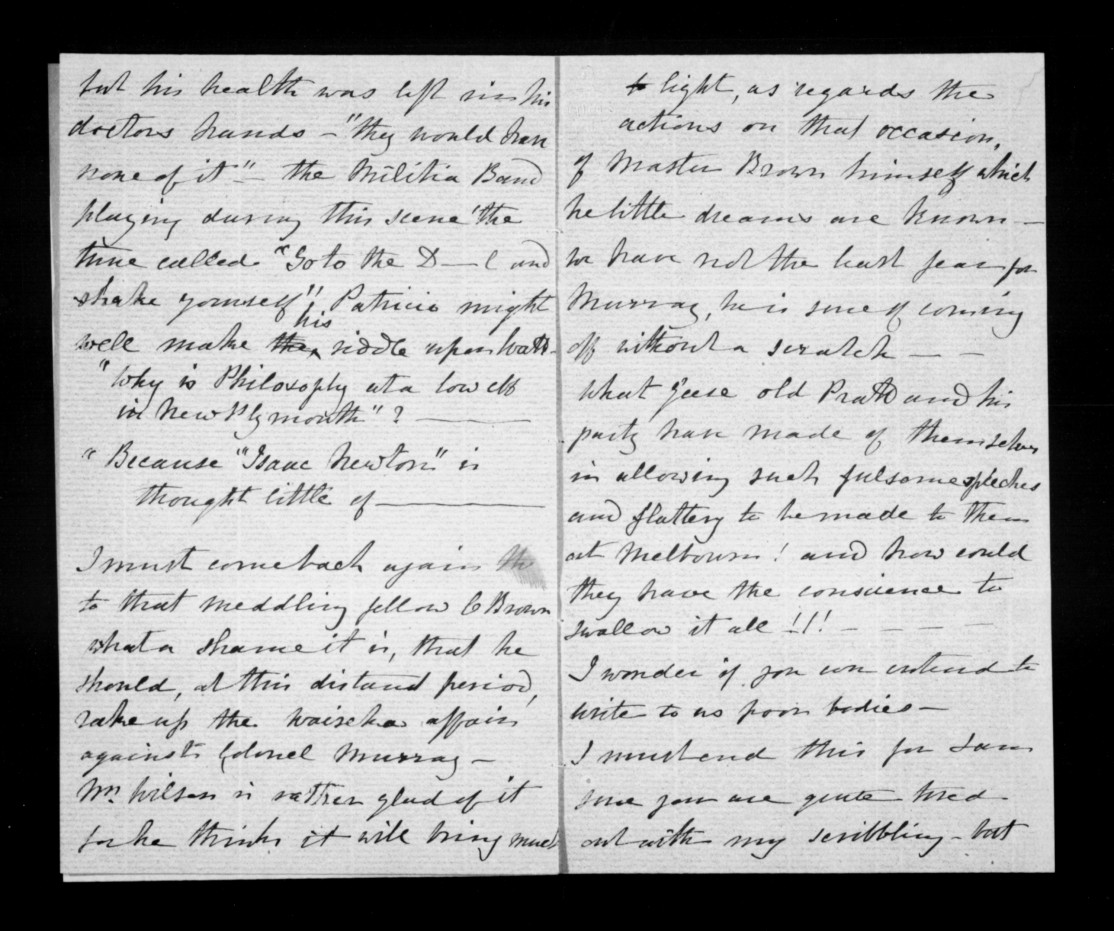 but his health was left in his
doctors hands - "they would have
none of it" - the Militia Band
playing during this scene 'the
tune called "Go to the D—l and
shake yourself"! Patricio might
well make the his riddle upon Watt-
"Why is Philosophy at a low ebb
in New Plymouth"? —
"Because "Isaac Newton" is
thought little of —
I must come back again th
to that meddling fellow C Brown
what a shame it is, that he
should, at this distant period,
rake up the Waireka affair
against Colonel Murray -
Mr. Wilson is rather glad of it
for he thinks it will bring much
to light, as regards the
actions on that occasion,
of Master Brown himself which
he little dreams are known -
we have not the least fear for
Murray, he is sure of coming
off without a scratch - -
what geese old Pratt and his
party have made of themselves
in allowing such fulsome speeches
and flattery to be made to them
at Melbourn! and how could
they have the conscience to
swallow it all !!! - - - -
I wonder if you ever intend to
write to us poor bodies -
I must end this for I am
sure you are quite tired
out with my scribbling - but